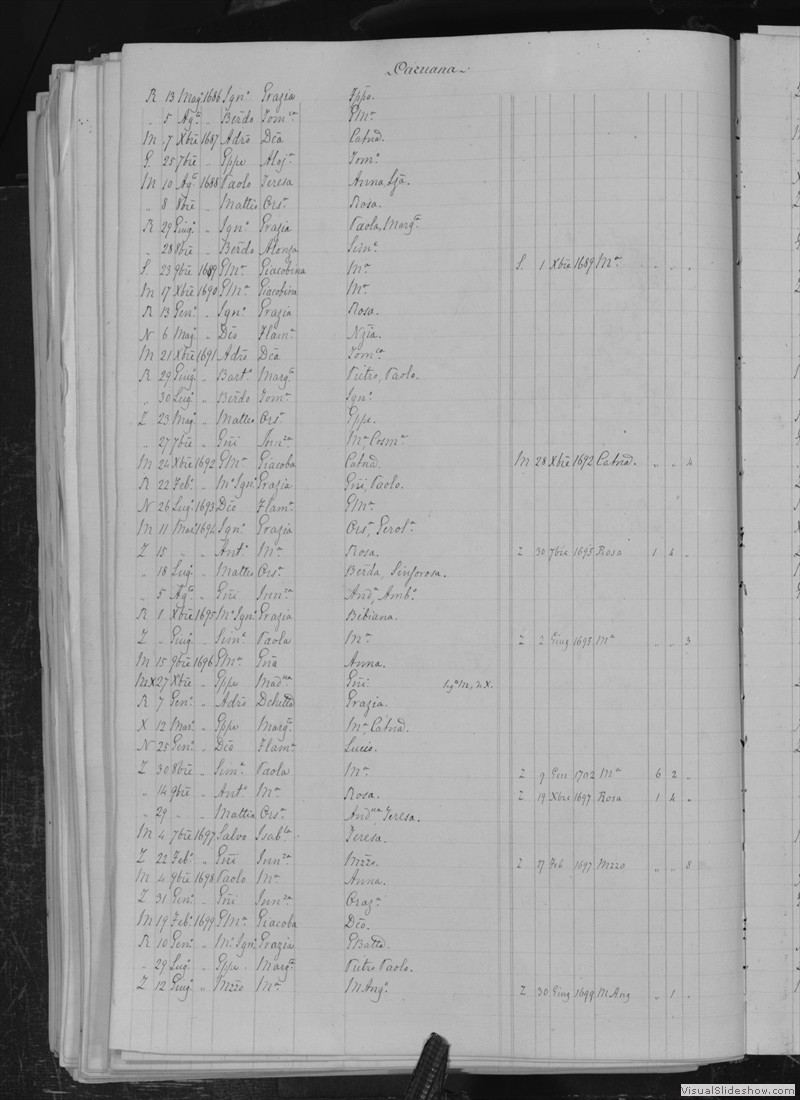 Caruana
R 13 Mag. 1686 Ign.o Grazia Gppe.
„ 5 Ag.to „ Berdo Tom.ca GMa.
M 7 Xbre 1687 Adro Dca Catnd.
G. 25 7bre „ Gppe Aloj.a Tom.o
M 10 Ag.to 1688 Paolo Teresa Anna,
„ 8 8bre „ Matteo Ors.a Rosa.
R 29 Giug. „ Ign.o Grazia Paola, Marg.ta
„ 28 8bre „ Berdo Alonza Sim.e
S. 23 9bre 1689 GMa. Giacobina Ma. S. 1 Xbre 1689 Ma. „ „ „
M 17 Xbre 1690 GMa. Giacobina Ma.
R 13 Gen.o „ Ign.o Grazia Rosa.
N 6 Mag. „ Dco Flam.a Nzia.
M 21 Xbre 1691 Adro Dca Tom.ca
R 29 Giug. „ Bart.o Marg.ta Pietro, Paolo.
„ 30 Lug. „ Berdo Tom.a Ign.o
Z 23 Mag. „ Matteo Ors.a Gppe.
„ 27 7bre „ Gni Inn.za Ma. Cosm.a
M 24 Xbre 1692 GMa. Giacoba Catnd. M 28 Xbre 1692 Catnd. „ „ 4
R 22 Feb.o „ Ma. Ign.o Grazia Gni, Paolo.
N 26 Lug. 1693 Dco Flam.a GMa.
M 11 Mar. 1694 Ign.o Grazia Ors.a, Gerol.a
Z 15 „ „ Ant.o Ma. Rosa. Z 30 7bre 1695 Rosa 1 4 „
„ 18 Lug. „ Matteo Ors.a Berda, Sinforosa.
„ 5 Ag.to „ Gni Inn.za And.a, Amb.o
R 1 Xbre 1695 Ma. Ign.o Grazia Bibiana.
Z „ Giug. „ Sim.e Paola Ma. Z 2 Giug 1695 Ma „ „ 3
M 15 9bre 1696 GMa. Gna Anna.
MX 27 Xbre „ Gppe Mad.na Gni
R 7 Gen.o „ Adro Grazia.
X 12 Mar. „ Gppe Marg.ta Ma. Catnd.
N 25 Gen.o „ Dco Flam.a Lucio.
Z 30 8bre „ Sim.e Paola Ma. Z 9 Gen 1702 Ma 6 2 „
„ 14 9bre „ Ant.o Ma. Rosa. Z 19 Xbre 1697 Rosa 1 4 „
„ 29 „ „ Matteo Ors.a And.na, Teresa.
M 4 7bre 1697 Salvo Isab.la Teresa.
Z 22 Feb.o „ Gni Inn.za Mzzo. Z 27 Feb 1697 Mzzo „ „ 8
M 4 9bre 1698 Paolo Ma. Anna.
Z 31 Gen.o „ Gni Inn.za Oraz.a
M 19 Feb.o 1699 GMa. Giacoba Dco.
R 10 Gen.o „ Ma. Ign.o Grazia GBatta.
„ 29 Lug. „ Gppe Marg.ta Pietro Paolo.
Z 12 Giug. „ Mzzo Ma. MAng.o Z 30 Giug 1699 M Ang „ 1 „
VisualSlideshow.com